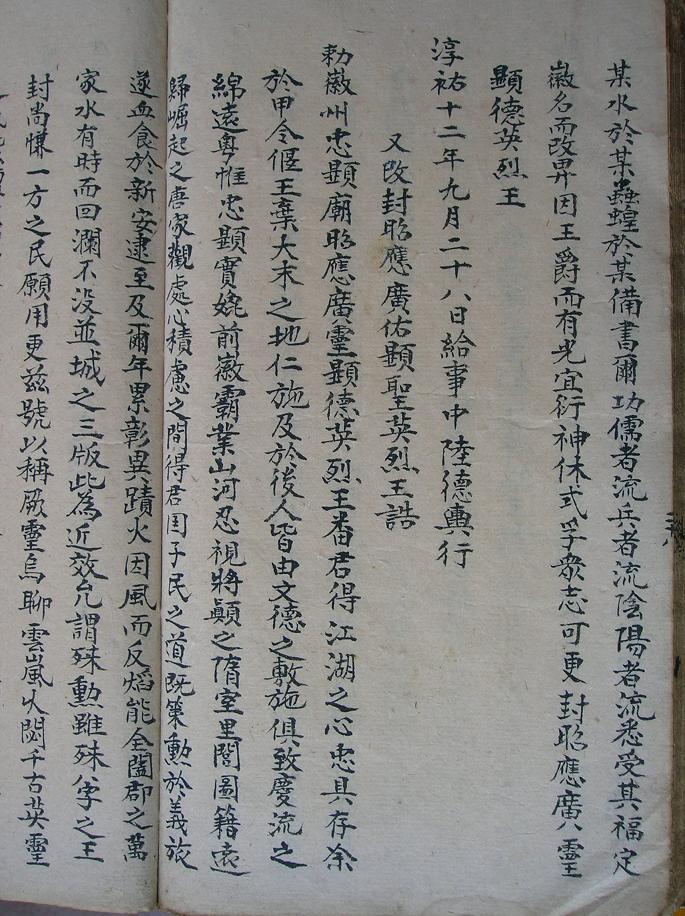 某水於某蟲蝗於某備書爾功儒者流兵者流陰陽者流悉受其福定
徽名而改畀因王爵而有光宜衍神休式孚衆志可更封昭應廣靈
顯德英烈王
淳祐十二年九月二十八日給事中陸德輿行
又改封昭應廣佑顯聖英烈王誥
勑徽州忠顯廟昭應廣靈顯德英烈王番君得江湖之心忠具存余
於甲令偃王棄大末之地仁施及於後人皆由文德之敷施俱致慶流之
綿遠粵惟忠顯實媲前徽霸業山河忍視將顛之隋室里閭圖籍遠
歸崛起之唐家觀處心積慮之間得君國子民之道既策勳於義旅
遂血食於新安逮至及爾年累彰異蹟火因風而反熖能全闔郡之萬
家水有時而回瀾不没並城之三版此為近效允謂殊勳雖殊八字之王
封尚慊一方之民願用更兹號以稱厥靈烏聊雲嵐火閟千古英靈